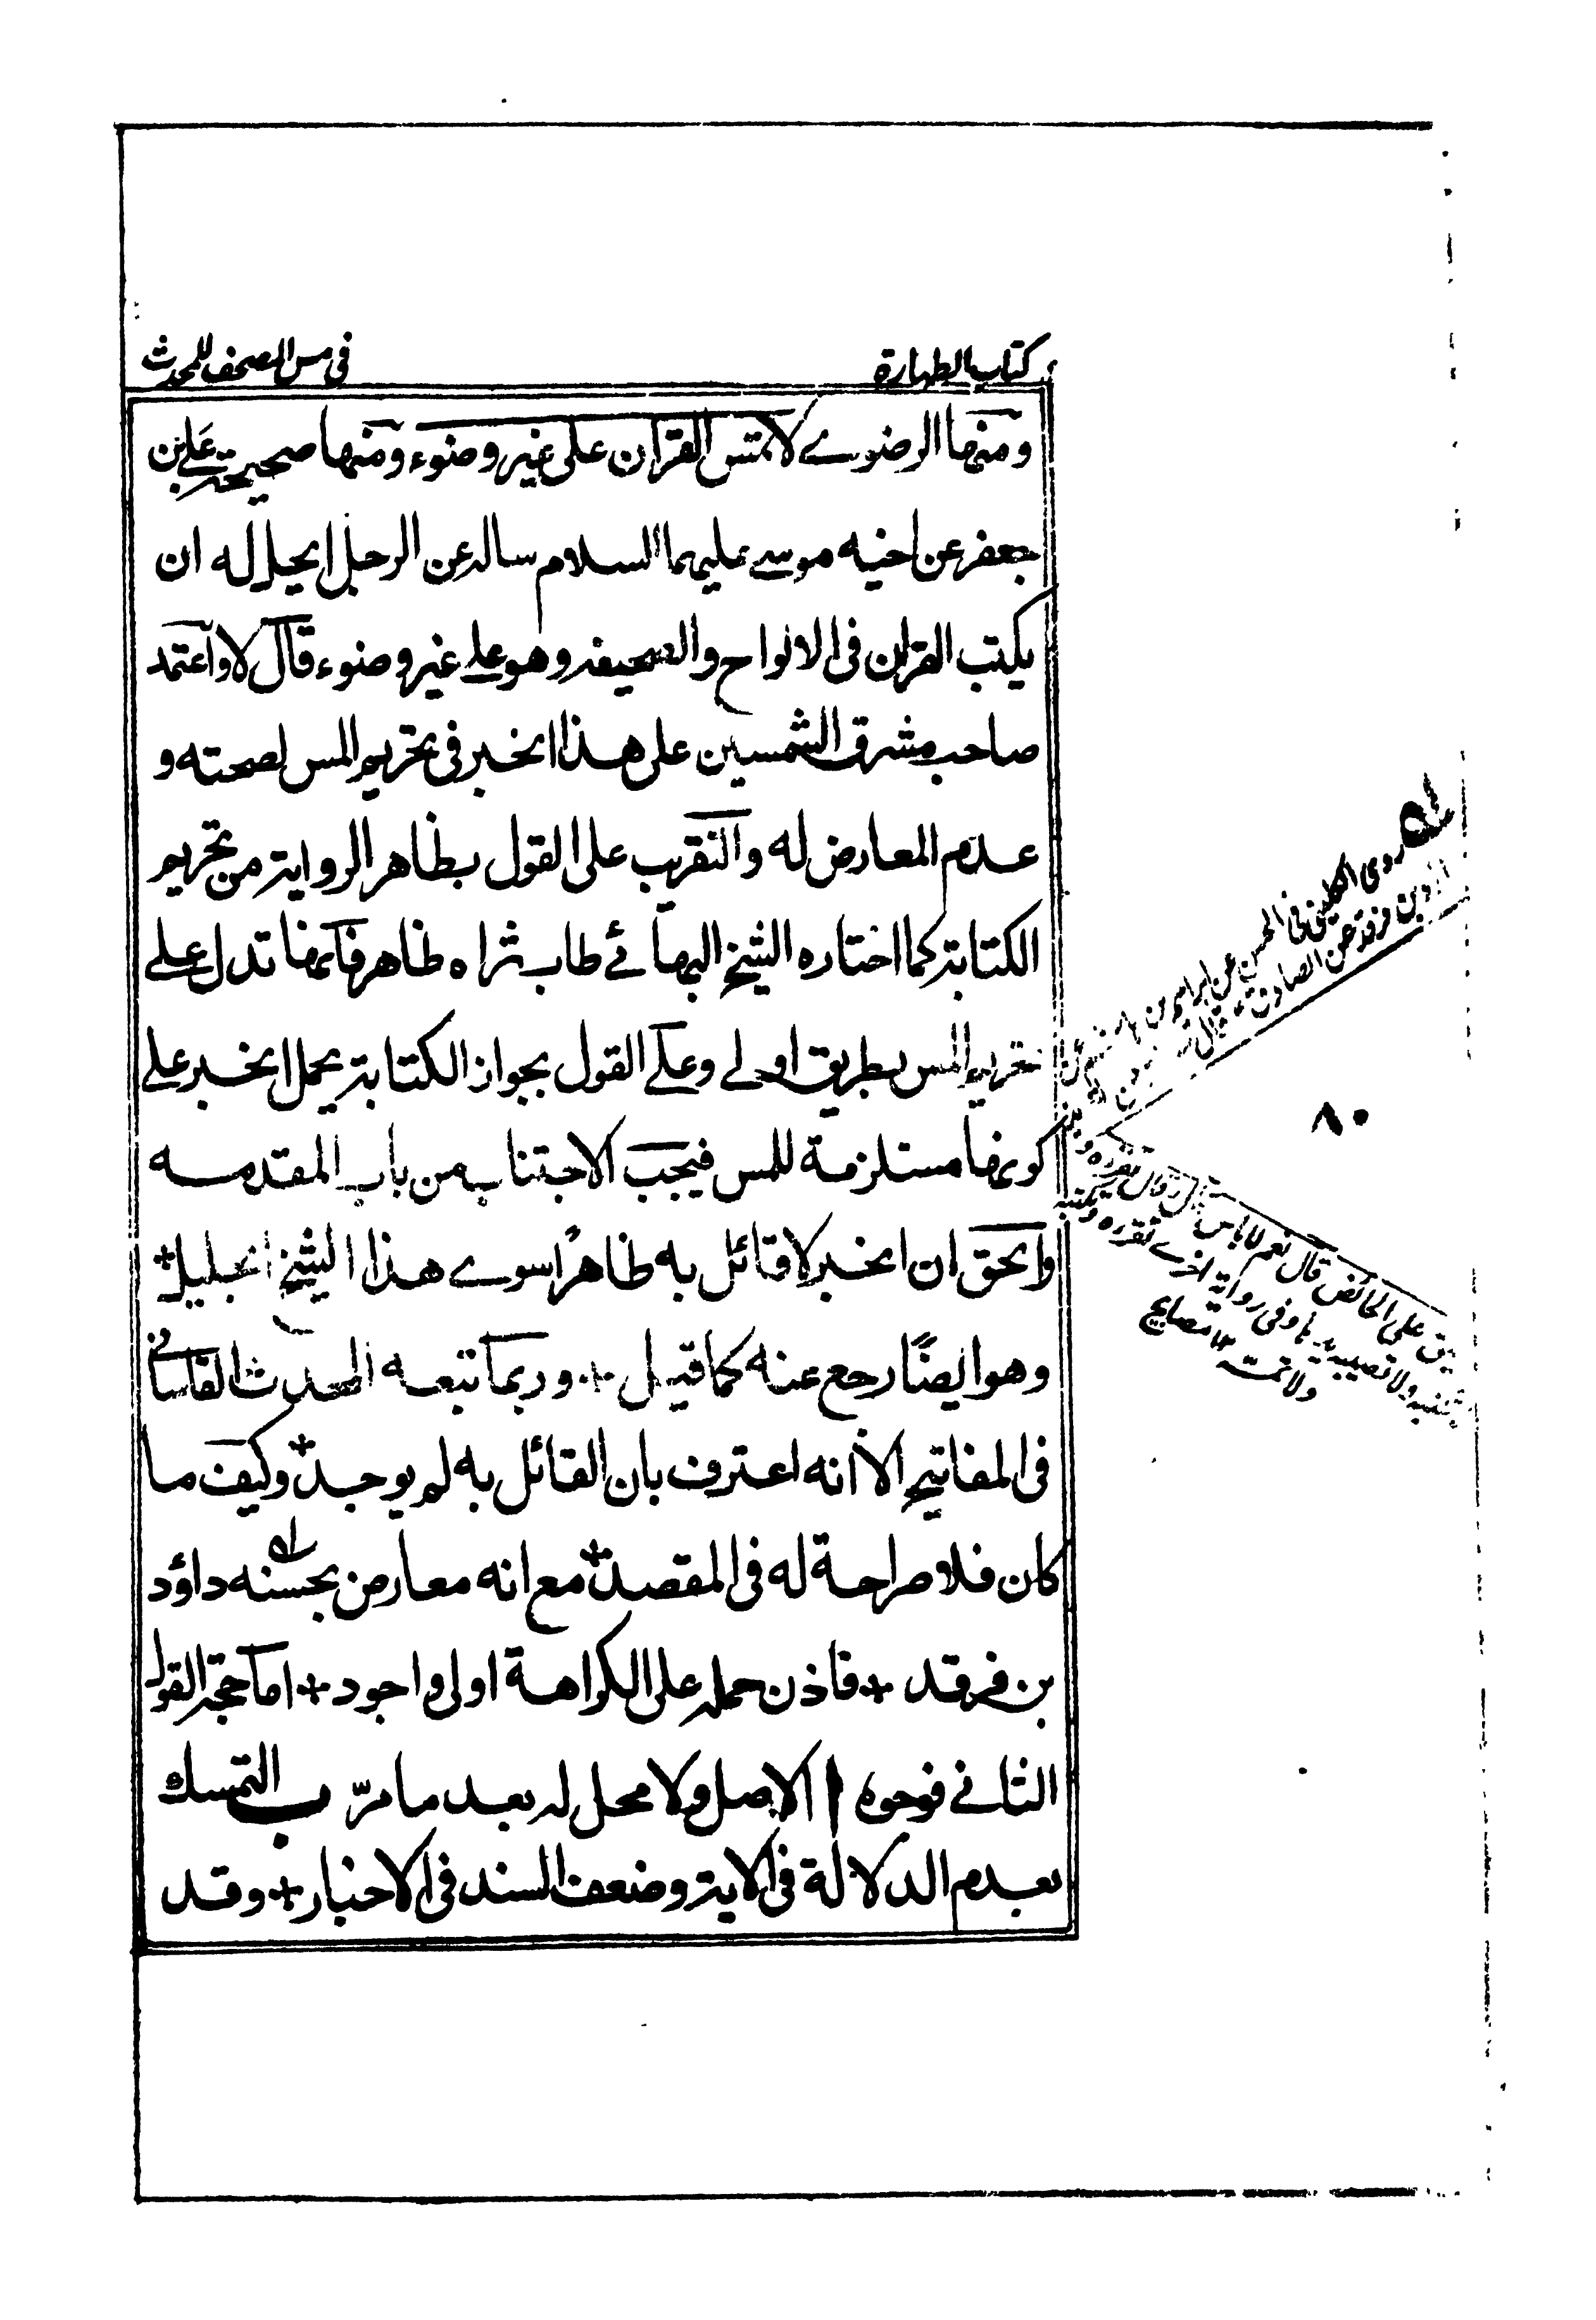 كتاب الطهارة
في مس المصحف للمحدث
ومنها الرضوي لا تمس القران على غير وضوء ومنها صحيحة علي بن
جعفر عن اخيه موسى عليهما السلام ساله عن الرجل ايحل له ان
يكتب القران في الالواح والصحيفة وهو على غير وضوء قال لا واعتمد
صاحب مشرق الشمسين على هذا الخبر في تحريم المس لصحته و
عدم المعارض له والتقريب على القول بظاهر الرواية من تحريم
الكتابة كما اختاره الشيخ البهائي طاب ثراه ظاهر فانها تدل على
تحريم المس بطريق اولى وعلى القول بجواز الكتابة يحمل الخبر على
كونها مستلزمة للمس فيجب الاجتناب من باب المقدمه
والحق ان الخبر لا قائل به ظاهرًا سوى هذا الشيخ الجليل *
وهو ايضًا رجع عنه كما قيل * وربما تبعه المحدث القاساني
في المفاتيح الا انه اعترف بان القائل به لم يوجد * وكيف ما
كان فلا صراحة له في المقصد * مع انه معارض بحسنه داؤد
بن فرقد * فاذن حمله على الكراهة اولى واجود * اما حجة القول
الثاني فوجوه ا الاصل ولا محل له بعد ما مرّ ب التمسك
بعدم الدلالة في الاية وضعف السند في الاخبار * وقد
روى الكليني في الحسن عن ابراهيم بن
بن فرقد عن الصادق ع قال
على الحائض قال نعم لا باس قال وقال تقرءه و
تكتبه ولا تصيبه يدها وفي رواية اخرى تقرءه وتكتبه
ولا تمسه ١٢ مصابيح
٨٠